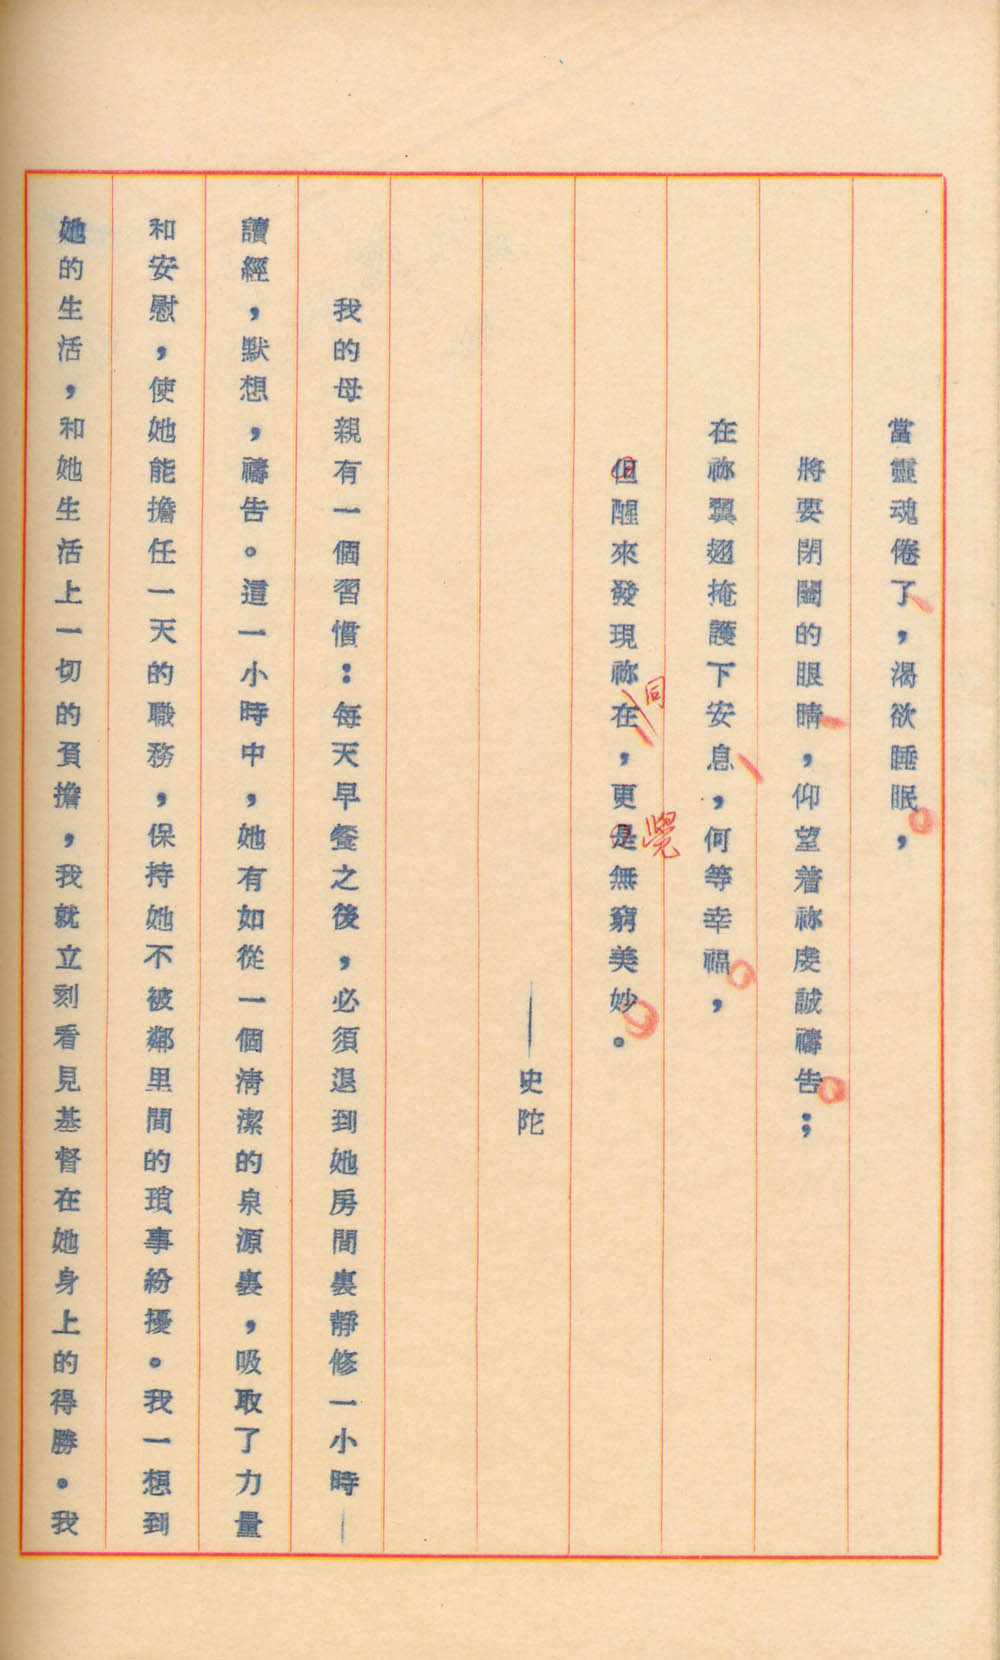 當靈魂倦了，渴欲睡眠，
將要閉闔的眼睛，仰望着祢虔誠禱告；
在祢翼翅掩護下安息，何等幸福，
但醒來發現祢在，更是無窮美妙。
同
覺
——史陀
我的母親有一個習慣：每天早餐之後，必須退到她房間裏靜修一小時—
讀經，默想，禱告。這一小時中，她有如從一個清潔的泉源裏，吸取了力量
和安慰，使她能擔任一天的職務，保持她不被鄰里間的瑣事紛擾。我一想到
她的生活，和她生活上一切的負擔，我就立刻看見基督在她身上的得勝。我